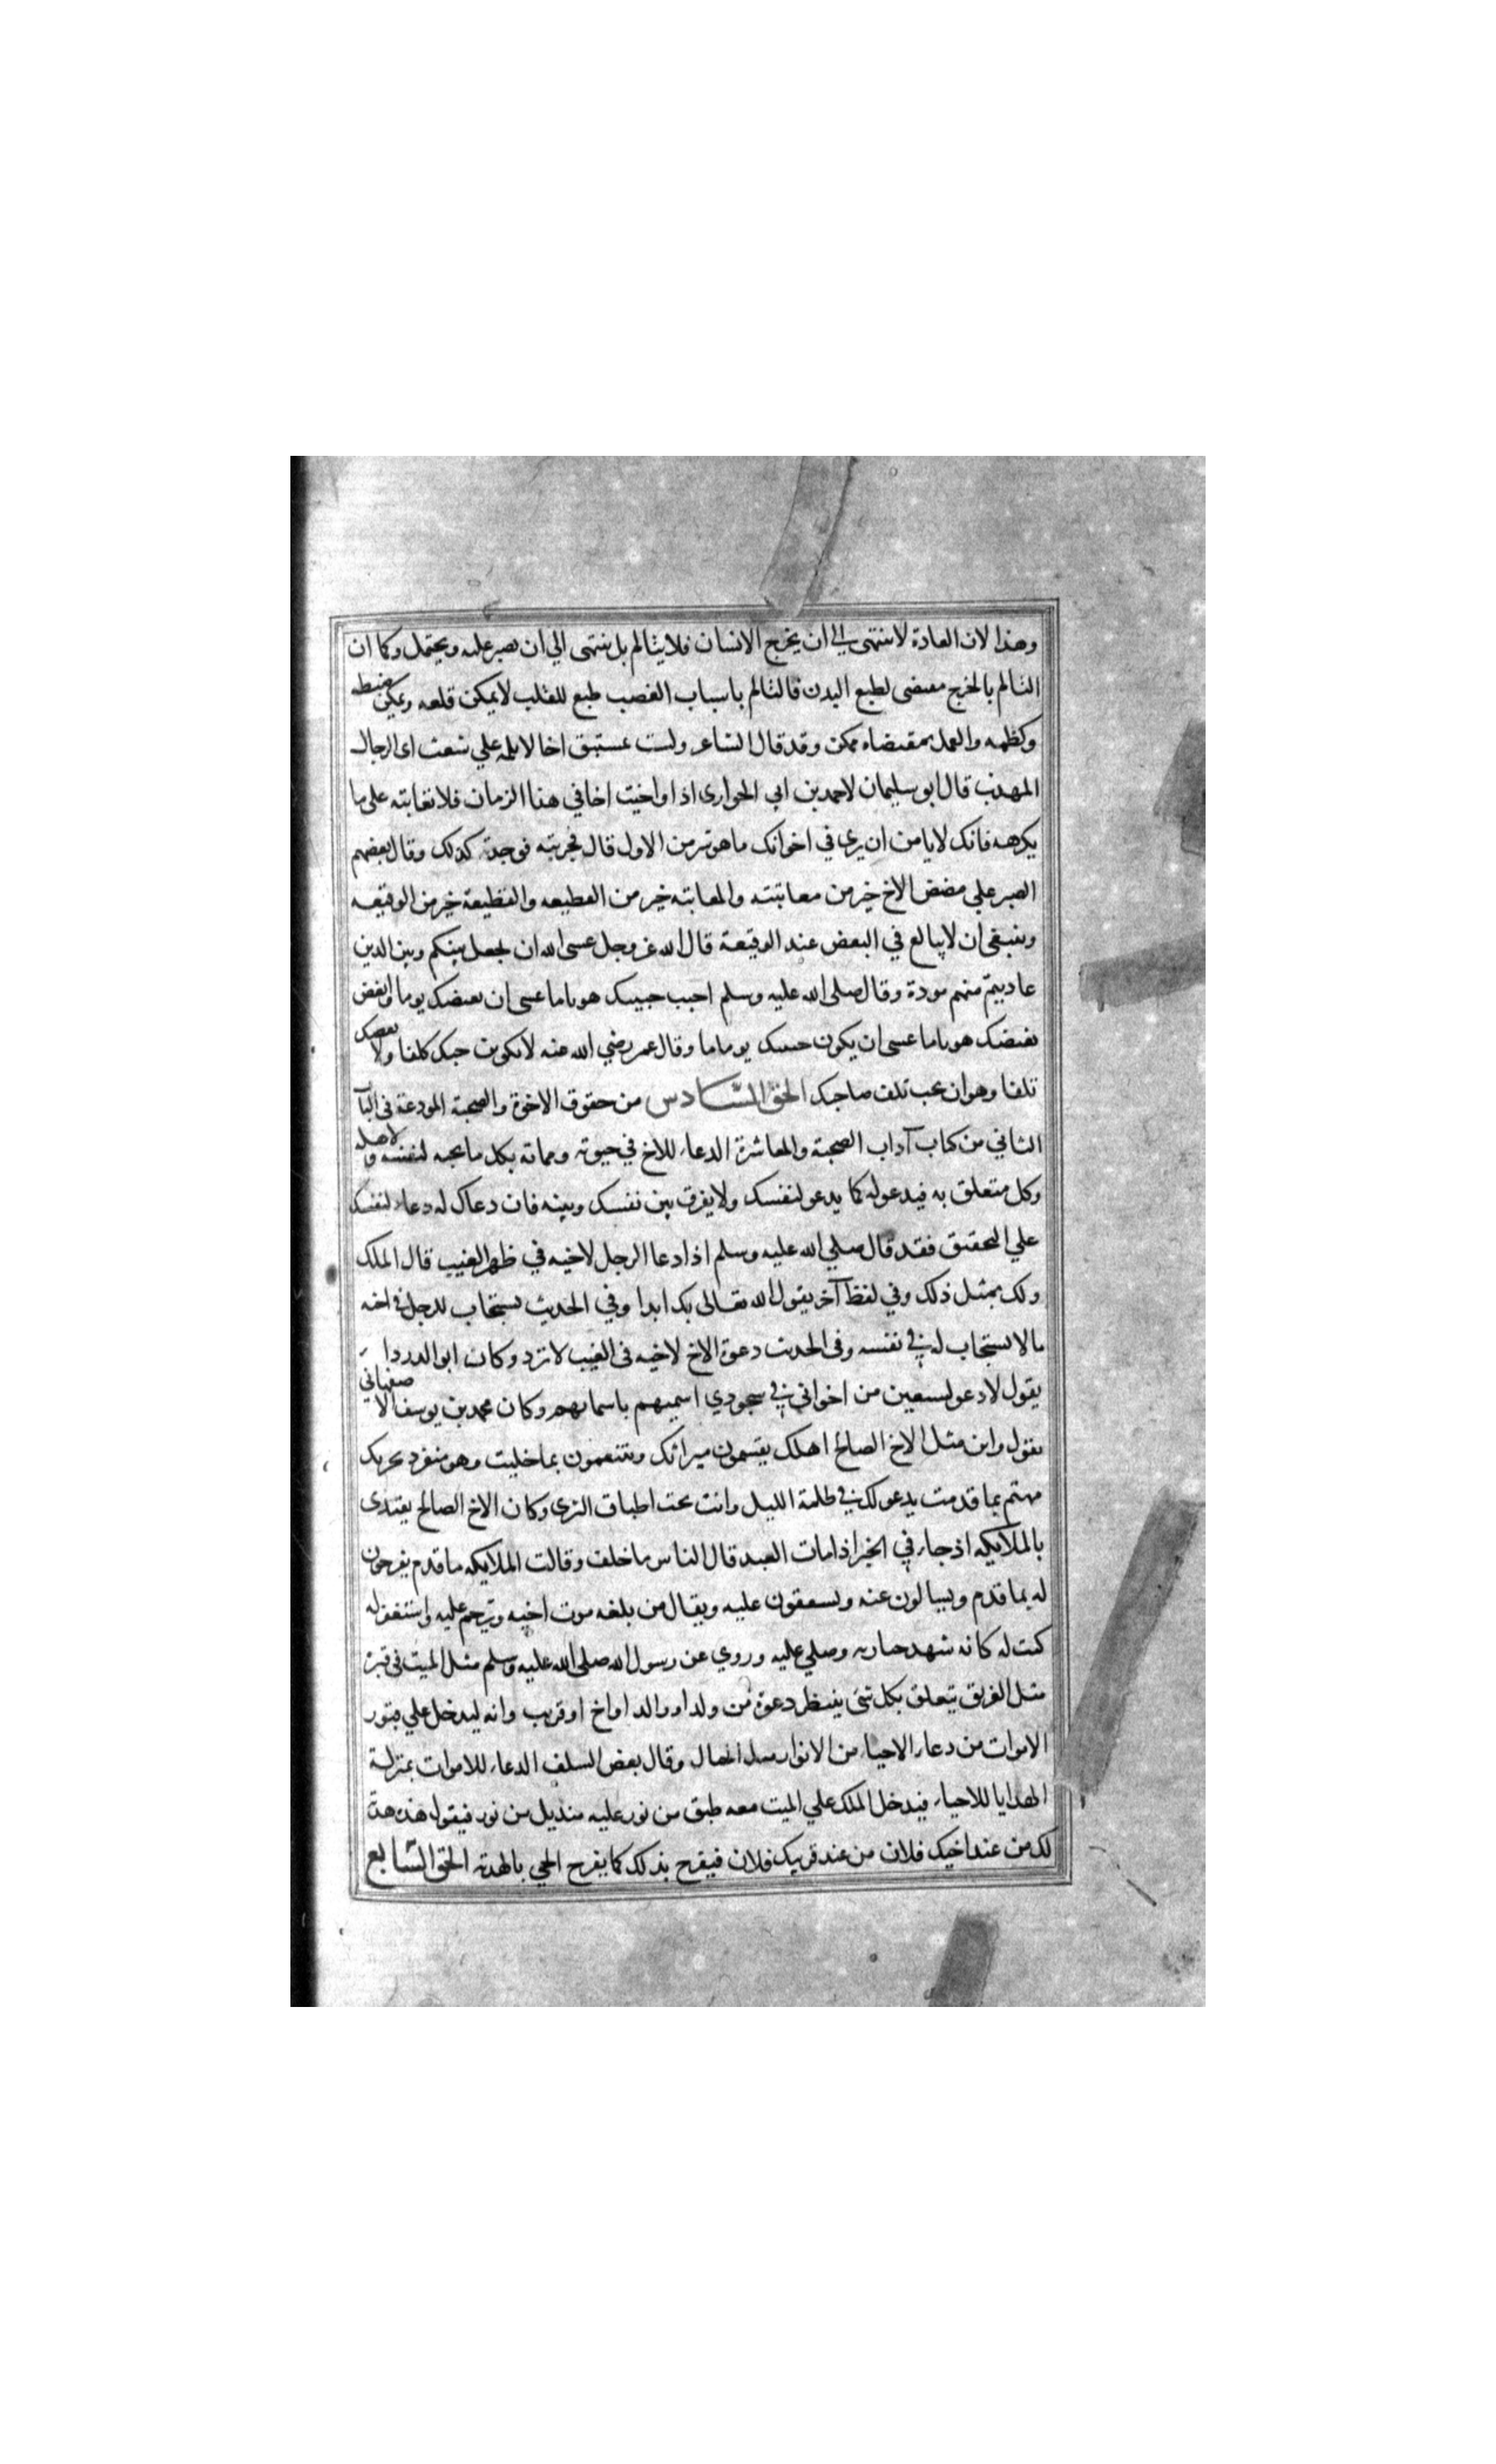 وهذا لان العادة لا تنتهى الي ان يجرح الانسان فلا يتالم بل تنتهى الي ان يصبر عليه ويحتمل وكما ان
التالم بالجرح مقتضى لطبع البدن فالتالم باسباب الغضب طبع للقلب لا يمكن قلعه ويمكن ضبطه
وكظمه والعمل بمقتضاه ممكن وقد قال الشاعر ولست بمستبق اخا لا تلمه علي شعث اى الرجال
المهذب قال ابو سليمان لاحمد بن ابي الحوارى اذا واخيت اخا في هذا الزمان فلا تعاتبه على ما
يكرهه فانك لا يامن ان يرى في اخوانك ما هو شر من الاول قال فجربته فوجدته كذلك وقال بعضهم
الصبر علي مضض الاخ خير من معاتبته والمعاتبة خير من القطيعه والقطيعة خير من الوقيعه
وينبغى ان لا يبالع في البعض عند الوقيعة قال الله عز وجل عسى الله ان يجعل بينكم وبين الدين
عاديتم منهم مودة وقال صلى الله عليه وسلم احبب حبيبك هونا ما عسى ان يبغضك يوما وابغض
بغيضك هونا ما عسى ان يكون حبيبك يوما ما وقال عمر رضي الله عنه لا يكون حبك كلفا ولا بغضك
تلفا وهو ان يحب تلف صاحبك الحق السادس من حقوق الاخوة والصحبة المودعة في البآ
الثاني من كتاب آداب الصحبة والمعاشرة الدعاء للاخ في حيوته ومماته بكل ما يحبه لنفسه ولاهله
وكل متعلق به فيدعو له كما يدعو لنفسك ولا يفرق بين نفسك وبينه فان دعاك له دعاء لنفسك
علي التحقيق فقد قال صلي الله عليه وسلم اذا دعا الرجل لاخيه في ظهر الغيب قال الملك
ولك بمثل ذلك وفي لفظ آخر يقول الله تعالى بك ابدا وفي الحديث يستجاب للرجل في اخيه
ما لا يستجاب له في نفسه وفى الحديث دعوة الاخ لاخيه فى الغيب لا ترد وكان ابو الدرداء
يقول لادعو لسبعين من اخواني في سجودي اسميهم باسمايهم وكان محمد بن يوسف الاصفهانى
يقول واين مثل الاخ الصالح اهلك يقسمون ميراثك ويتنعمون بما خلفت وهو منفرد بحزنك
مهتم بما قدمت يدعو لك في ظلمة الليل وانت تحت اطباق الثرى وكان الاخ الصالح يقتدى
بالملايكه اذ جاء في الخبر اذا مات العبد قال الناس ما خلف وقالت الملايكه ما قدم يفرحون
له بما قدم ويسالون عنه ويسفقون عليه ويقال من بلغه موت اخيه وترحم عليه واستغفر له
كتب له كانه شهد جنازته وصلي عليه وروي عن رسول الله صلى الله عليه وسلم مثل الميت فى قبره
مثل الغريق يتعلق بكل شى ينتظر دعوة من ولد او والد او اخ او قريب وانه ليدخل علي قبور
الاموات من دعاء الاحياء من الانوار مثل الجبال وقال بعض السلف الدعاء للاموات بمنزلة
الهدايا للاحياء فيدخل الملك علي الميت معه طبق من نور عليه منديل من نور فيقول هذه هدية
لك من عند اخيك فلان من عند قريبك فلان فيفرح بذلك كما يفرح الحي بالهدية الحق السابع